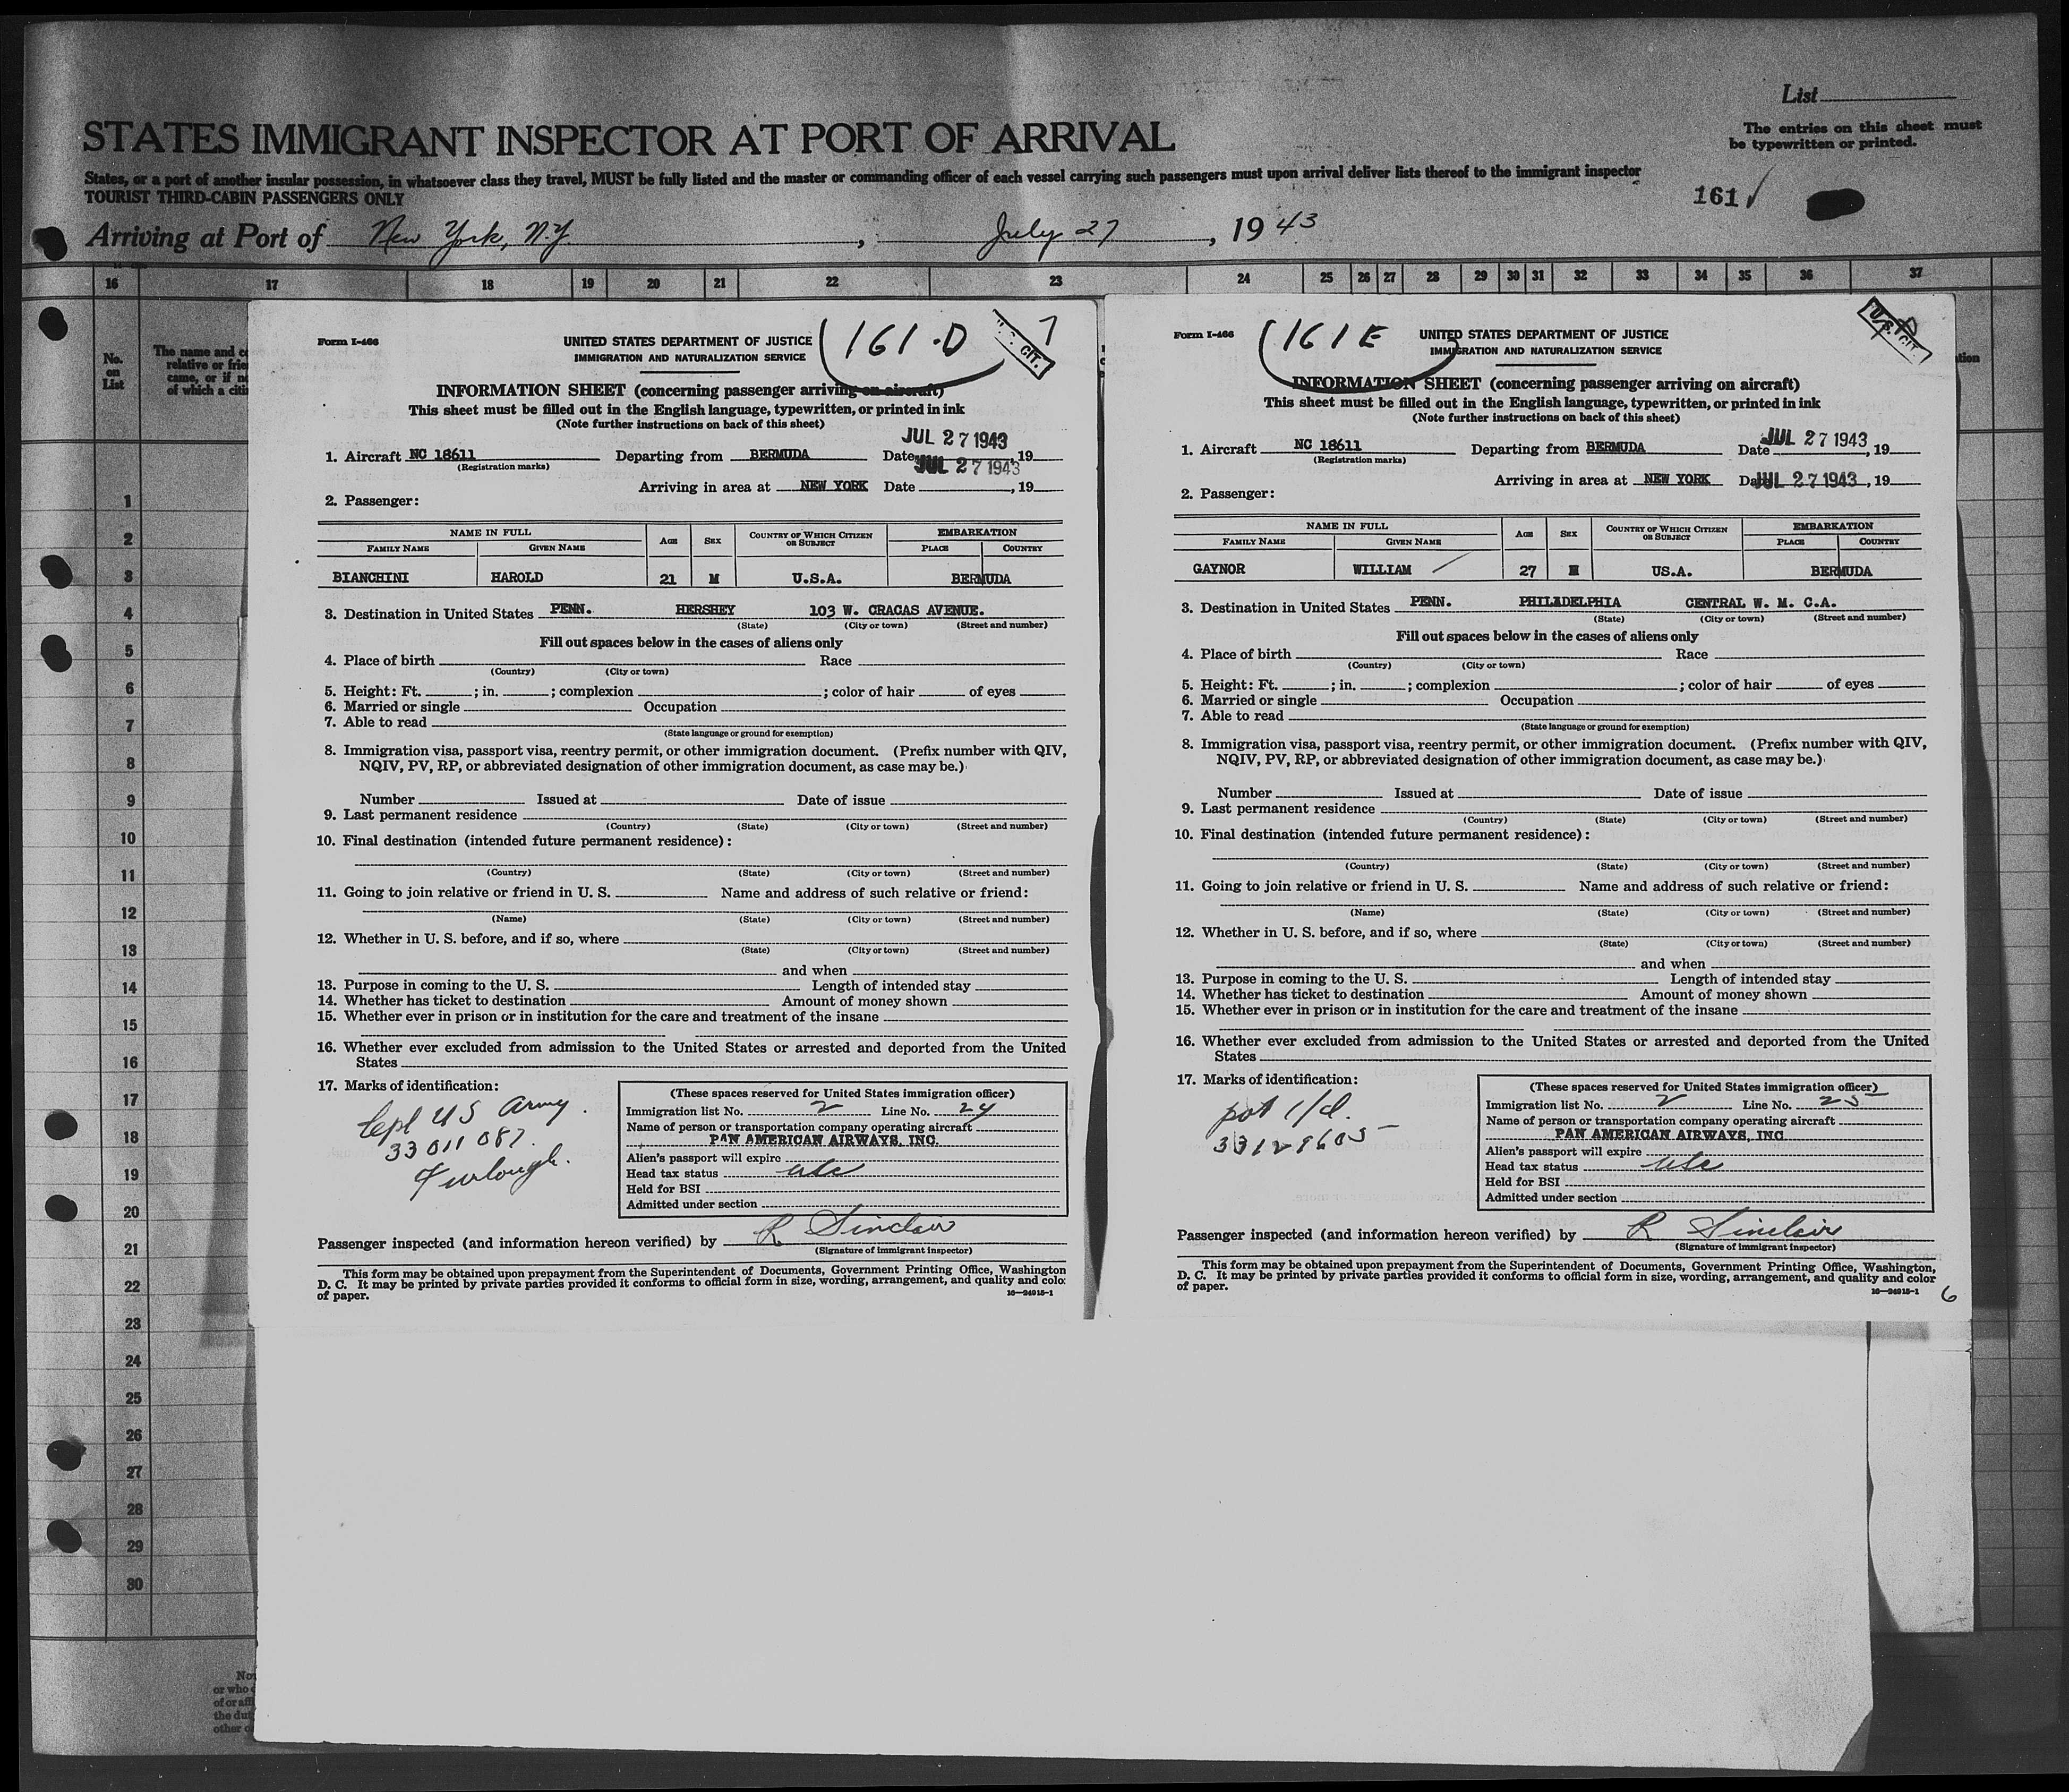 List
STATES IMMIGRANT INSPECTOR AT PORT OF ARRIVAL
The entries on this sheet must
be typewritten or printed.
States, or a port of another insular possession, in whatsoever class they travel, MUST be fully listed and the master or commanding officer of each vessel carrying such passengers must upon arrival deliver lists thereof to the immigrant inspector
TOURIST THIRD-CABIN PASSENGERS ONLY
161 ✓
Arriving at Port of New York, N.Y., July 27, 1943
16 17 18 19 20 21 22 23 24 25 26 27 28 29 30 31 32 33 34 35 36 37
No.
on
List
The name and c
relative or frie
came, or if n
of which a citi
tion
1
2
3
4
5
6
7
8
9
10
11
12
13
14
15
16
17
18
19
20
21
22
23
24
25
26
27
28
29
30
or who
of or aff
the dut
other o
Form I-466
161-D
7
CIT.
UNITED STATES DEPARTMENT OF JUSTICE
IMMIGRATION AND NATURALIZATION SERVICE
INFORMATION SHEET (concerning passenger arriving on aircraft)
This sheet must be filled out in the English language, typewritten, or printed in ink
(Note further instructions on back of this sheet)
JUL 27 1943
1. Aircraft NC 18611 Departing from BERMUDA Date JUL 27 1943, 19
(Registration marks)
Arriving in area at NEW YORK Date , 19
2. Passenger:
NAME IN FULL
AGE SEX COUNTRY OF WHICH CITIZEN OR SUBJECT
EMBARKATION
FAMILY NAME GIVEN NAME PLACE COUNTRY
BIANCHINI HAROLD 21 M U.S.A. BERMUDA
3. Destination in United States PENN. HERSHEY 103 W. CRACAS AVENUE.
(State) (City or town) (Street and number)
Fill out spaces below in the cases of aliens only
4. Place of birth Race
(Country) (City or town)
5. Height: Ft. ; in. ; complexion ; color of hair of eyes
6. Married or single Occupation
7. Able to read
(State language or ground for exemption)
8. Immigration visa, passport visa, reentry permit, or other immigration document. (Prefix number with QIV,
NQIV, PV, RP, or abbreviated designation of other immigration document, as case may be.)
Number Issued at Date of issue
9. Last permanent residence
(Country) (State) (City or town) (Street and number)
10. Final destination (intended future permanent residence):
(Country) (State) (City or town) (Street and number)
11. Going to join relative or friend in U. S. Name and address of such relative or friend:
(Name) (State) (City or town) (Street and number)
12. Whether in U. S. before, and if so, where
(State) (City or town) (Street and number)
and when
13. Purpose in coming to the U. S. Length of intended stay
14. Whether has ticket to destination Amount of money shown
15. Whether ever in prison or in institution for the care and treatment of the insane
16. Whether ever excluded from admission to the United States or arrested and deported from the United
States
17. Marks of identification:
Cepl US Army.
33 011 087.
Furlough.
(These spaces reserved for United States immigration officer)
Immigration list No. 2 Line No. 24
Name of person or transportation company operating aircraft
PAN AMERICAN AIRWAYS, INC.
Alien's passport will expire
Head tax status usc
Held for BSI
Admitted under section
Passenger inspected (and information hereon verified) by R Sinclair
(Signature of immigrant inspector)
This form may be obtained upon prepayment from the Superintendent of Documents, Government Printing Office, Washington
D. C. It may be printed by private parties provided it conforms to official form in size, wording, arrangement, and quality and colo
of paper.
16—24915-1
Form I-466
161 E
U.S. CIT.
UNITED STATES DEPARTMENT OF JUSTICE
IMMIGRATION AND NATURALIZATION SERVICE
INFORMATION SHEET (concerning passenger arriving on aircraft)
This sheet must be filled out in the English language, typewritten, or printed in ink
(Note further instructions on back of this sheet)
1. Aircraft NC 18611 Departing from BERMUDA Date JUL 27 1943, 19
(Registration marks)
Arriving in area at NEW YORK Date JUL 27 1943, 19
2. Passenger:
NAME IN FULL
AGE SEX COUNTRY OF WHICH CITIZEN OR SUBJECT
EMBARKATION
FAMILY NAME GIVEN NAME PLACE COUNTRY
GAYNOR WILLIAM 27 M US.A. BERMUDA
3. Destination in United States PENN. PHILADELPHIA CENTRAL W. M. C.A.
(State) (City or town) (Street and number)
Fill out spaces below in the cases of aliens only
4. Place of birth Race
(Country) (City or town)
5. Height: Ft. ; in. ; complexion ; color of hair of eyes
6. Married or single Occupation
7. Able to read
(State language or ground for exemption)
8. Immigration visa, passport visa, reentry permit, or other immigration document. (Prefix number with QIV,
NQIV, PV, RP, or abbreviated designation of other immigration document, as case may be.)
Number Issued at Date of issue
9. Last permanent residence
(Country) (State) (City or town) (Street and number)
10. Final destination (intended future permanent residence):
(Country) (State) (City or town) (Street and number)
11. Going to join relative or friend in U. S. Name and address of such relative or friend:
(Name) (State) (City or town) (Street and number)
12. Whether in U. S. before, and if so, where
(State) (City or town) (Street and number)
and when
13. Purpose in coming to the U. S. Length of intended stay
14. Whether has ticket to destination Amount of money shown
15. Whether ever in prison or in institution for the care and treatment of the insane
16. Whether ever excluded from admission to the United States or arrested and deported from the United
States
17. Marks of identification:
33129605
(These spaces reserved for United States immigration officer)
Immigration list No. 2 Line No. 25
Name of person or transportation company operating aircraft
PAN AMERICAN AIRWAYS, INC
Alien's passport will expire
Head tax status usc
Held for BSI
Admitted under section
Passenger inspected (and information hereon verified) by R Sinclair
(Signature of immigrant inspector)
This form may be obtained upon prepayment from the Superintendent of Documents, Government Printing Office, Washington,
D. C. It may be printed by private parties provided it conforms to official form in size, wording, arrangement, and quality and color
of paper.
16—24915-1
6